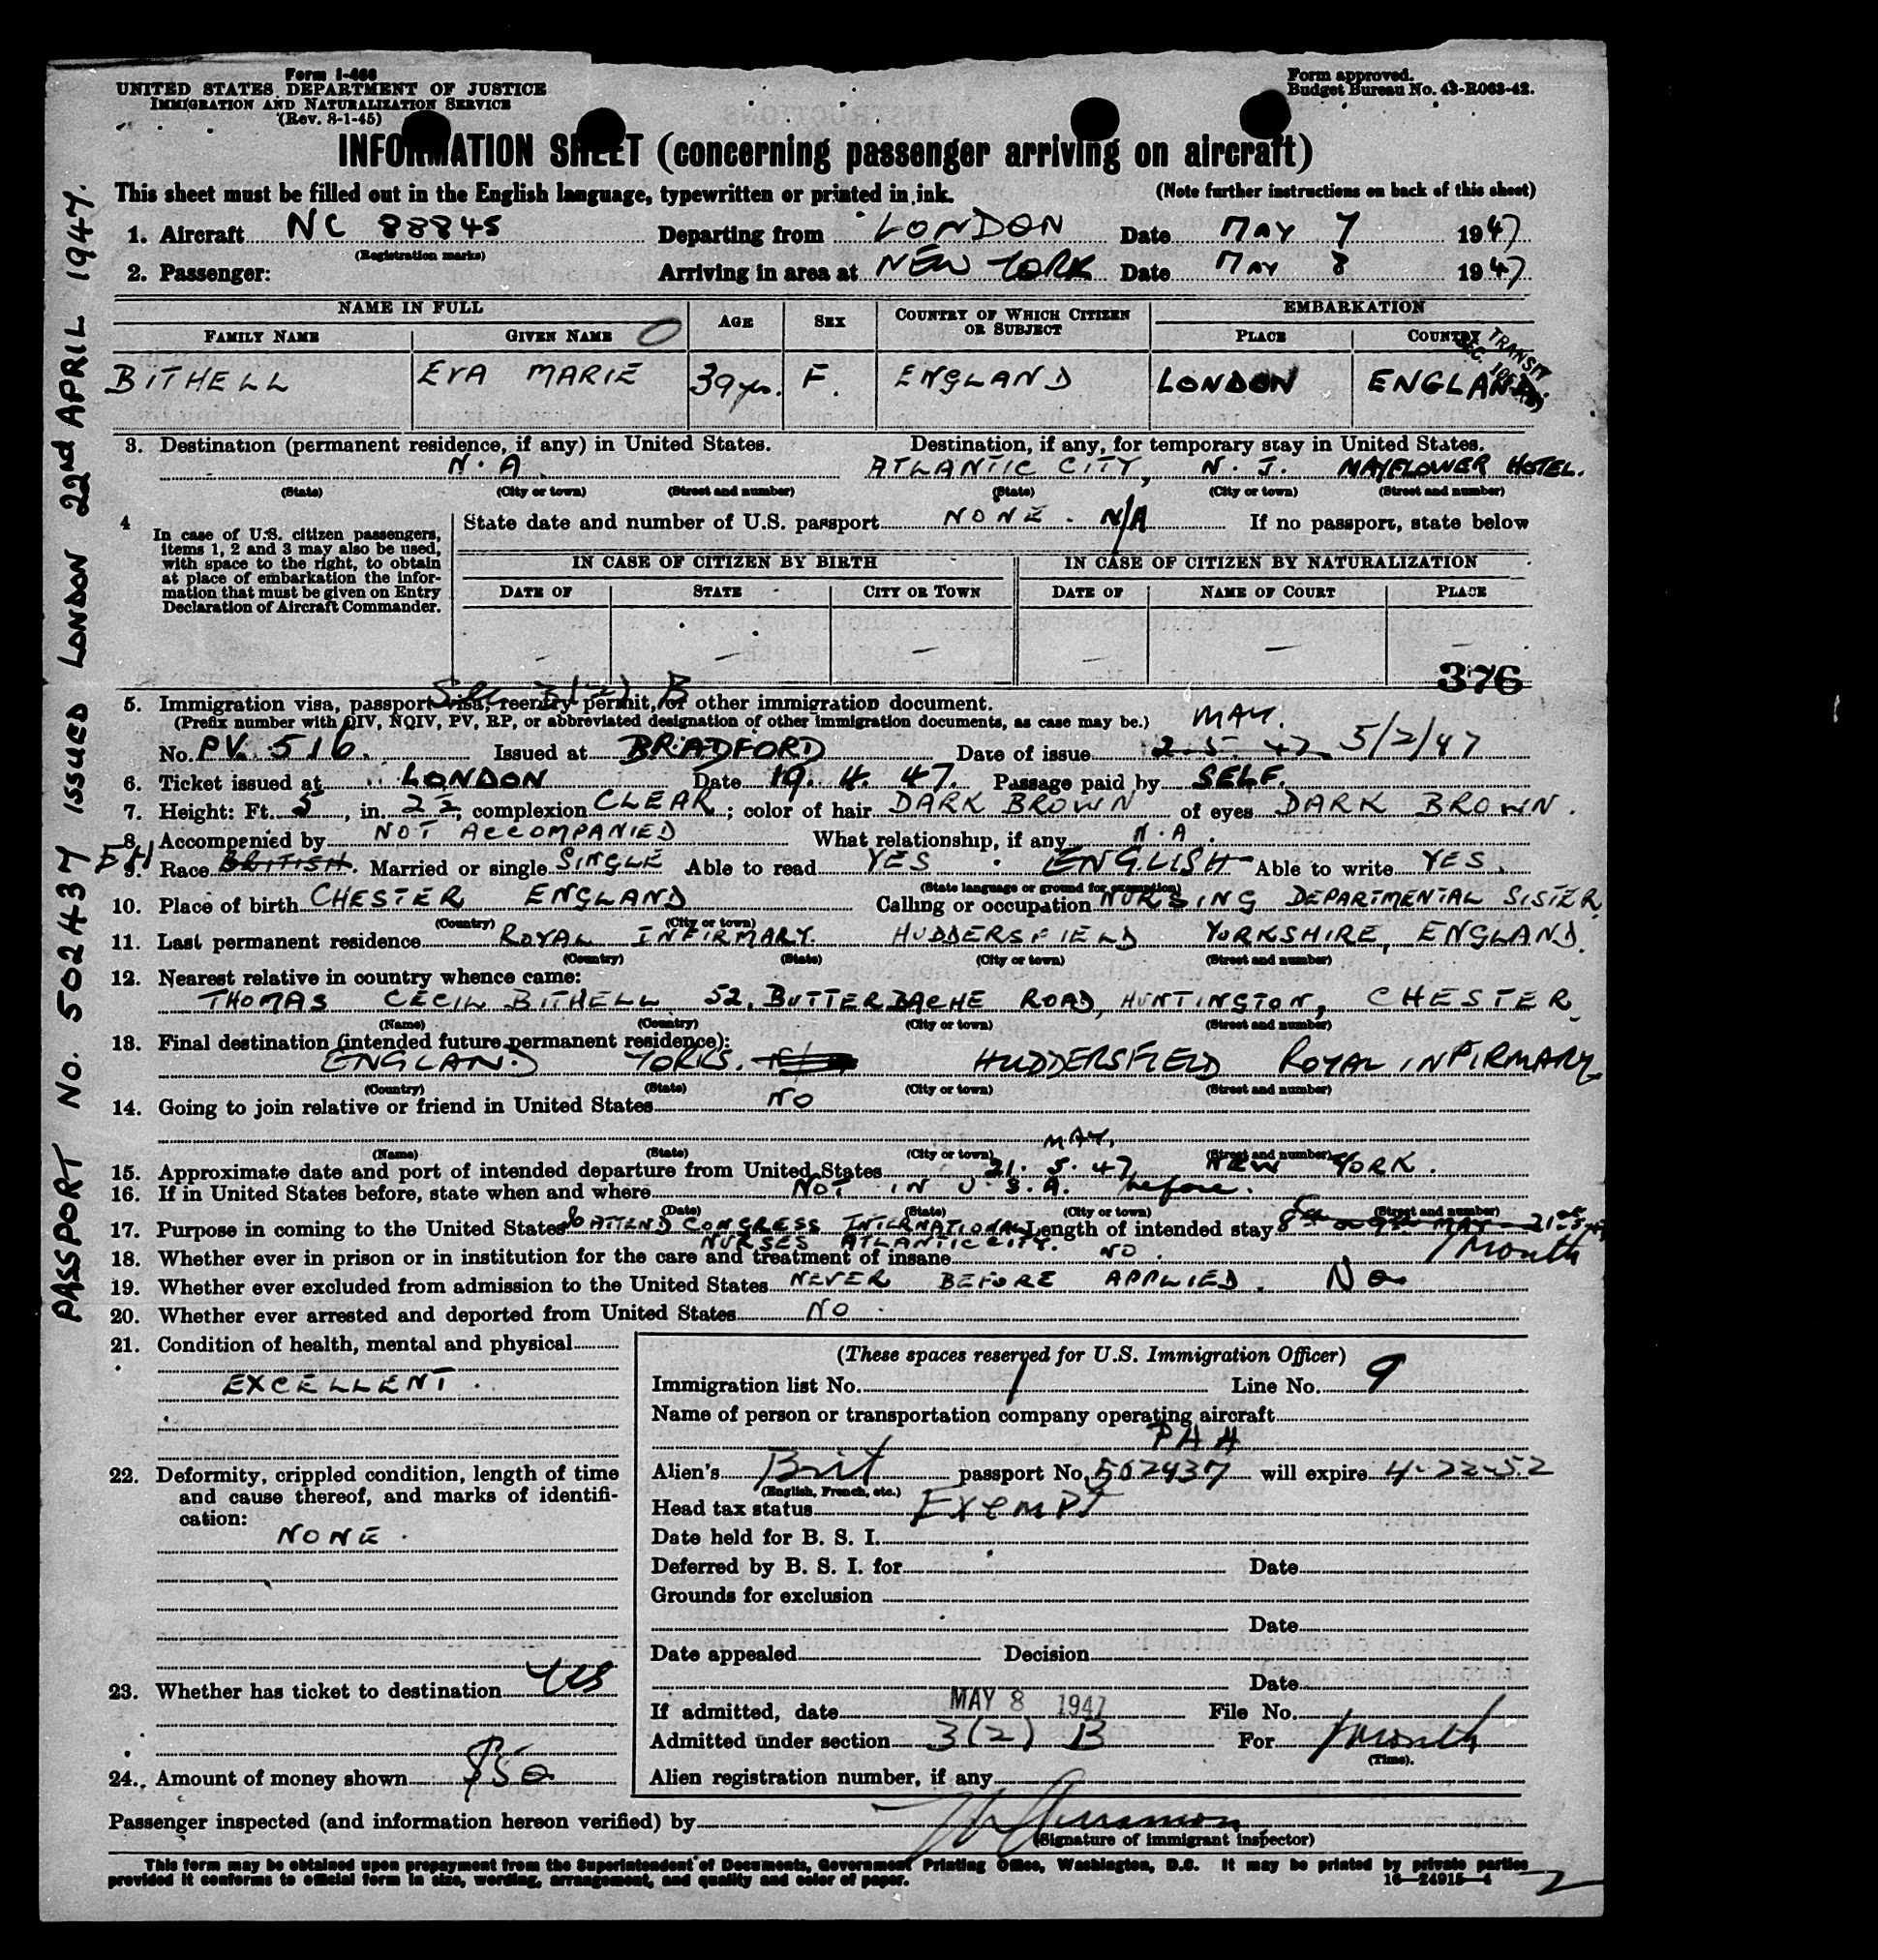 Form I-466
UNITED STATES DEPARTMENT OF JUSTICE
IMMIGRATION AND NATURALIZATION SERVICE
(Rev. 8-1-45)
Form approved.
Budget Bureau No. 43-R063-42.
INFORMATION SHEET (concerning passenger arriving on aircraft)
This sheet must be filled out in the English language, typewritten or printed in ink. (Note further instructions on back of this sheet)
1. Aircraft NC 88845 Departing from LONDON Date MAY 7 1947
(Registration marks)
2. Passenger: Arriving in area at NEW YORK Date MAY 8 1947
NAME IN FULL AGE SEX COUNTRY OF WHICH CITIZEN OR SUBJECT EMBARKATION
FAMILY NAME GIVEN NAME PLACE COUNTRY
TRANSIT
BITHELL EVA MARIE 39 yrs. F. ENGLAND LONDON ENGLAND
3. Destination (permanent residence, if any) in United States. Destination, if any, for temporary stay in United States.
N.A. ATLANTIC CITY, N.J. MAYFLOWER HOTEL.
(State) (City or town) (Street and number) (State) (City or town) (Street and number)
4 In case of U.S. citizen passengers, items 1, 2 and 3 may also be used, with space to the right, to obtain at place of embarkation the information that must be given on Entry Declaration of Aircraft Commander.
State date and number of U.S. passport NONE. N/A If no passport, state below
IN CASE OF CITIZEN BY BIRTH IN CASE OF CITIZEN BY NATURALIZATION
DATE OF STATE CITY OR TOWN DATE OF NAME OF COURT PLACE
– – – – – –
376
Sec 3(2) B
5. Immigration visa, passport visa, reentry permit, or other immigration document.
(Prefix number with QIV, NQIV, PV, RP, or abbreviated designation of other immigration documents, as case may be.) MAY.
No. PV. 516. Issued at BRADFORD Date of issue 2-5-47 5/2/47
6. Ticket issued at LONDON Date 19. 4. 47. Passage paid by SELF.
7. Height: Ft. 5, in. 2½, complexion CLEAR; color of hair DARK BROWN of eyes DARK BROWN.
8. Accompanied by NOT ACCOMPANIED What relationship, if any N.A.
9. Race BRITISH. Married or single SINGLE Able to read YES. ENGLISH Able to write YES.
(State language or ground for exemption)
10. Place of birth CHESTER ENGLAND Calling or occupation NURSING DEPARTMENTAL SISTER.
(Country) (City or town)
11. Last permanent residence ROYAL INFIRMARY. HUDDERSFIELD YORKSHIRE, ENGLAND.
(Country) (State) (City or town) (Street and number)
12. Nearest relative in country whence came:
THOMAS CECIL BITHELL 52, BUTTERBACHE ROAD, HUNTINGTON, CHESTER.
(Name) (Country) (City or town) (Street and number)
13. Final destination (intended future permanent residence):
ENGLAND YORKS. HUDDERSFIELD ROYAL INFIRMARY.
(Country) (State) (City or town) (Street and number)
14. Going to join relative or friend in United States NO
MAY.
(Name) (State) (City or town) (Street and number)
15. Approximate date and port of intended departure from United States 21. 5. 47, NEW YORK.
16. If in United States before, state when and where NOT IN U.S.A. before.
(Date) (State) (City or town) (Street and number)
17. Purpose in coming to the United States to ATTEND CONGRESS INTERNATIONAL Length of intended stay
NURSES ATLANTIC CITY. 1 Month
18. Whether ever in prison or in institution for the care and treatment of insane NO.
19. Whether ever excluded from admission to the United States NEVER BEFORE APPLIED. No
20. Whether ever arrested and deported from United States NO.
21. Condition of health, mental and physical
EXCELLENT.
22. Deformity, crippled condition, length of time and cause thereof, and marks of identification:
NONE.
23. Whether has ticket to destination yes
24. Amount of money shown $50
(These spaces reserved for U.S. Immigration Officer)
Immigration list No. 1 Line No. 9
Name of person or transportation company operating aircraft
PAA
Alien's Brit passport No. 502437 will expire 4-22-52
(English, French, etc.)
Head tax status Exempt
Date held for B. S. I.
Deferred by B. S. I. for Date
Grounds for exclusion
Date
Date appealed Decision
Date
If admitted, date MAY 8 1947 File No.
Admitted under section 3(2) B For 1 month
(Time).
Alien registration number, if any
Passenger inspected (and information hereon verified) by
(Signature of immigrant inspector)
This form may be obtained upon prepayment from the Superintendent of Documents, Government Printing Office, Washington, D.C. It may be printed by private parties
provided it conforms to official form in size, wording, arrangement, and quality and color of paper. 16—24915-4
2
PASSPORT NO. 502437 ISSUED LONDON 22nd APRIL 1947.